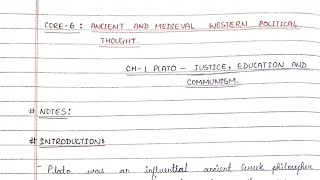 CORE-6 : ANCIENT AND MEDIEVAL WESTERN POLITICAL
THOUGHT.
CH-1 PLATO - JUSTICE, EDUCATION AND
COMMUNISM.
# NOTES:
# INTRODUCTION:
- Plato was an influential ancient Greek philosopher